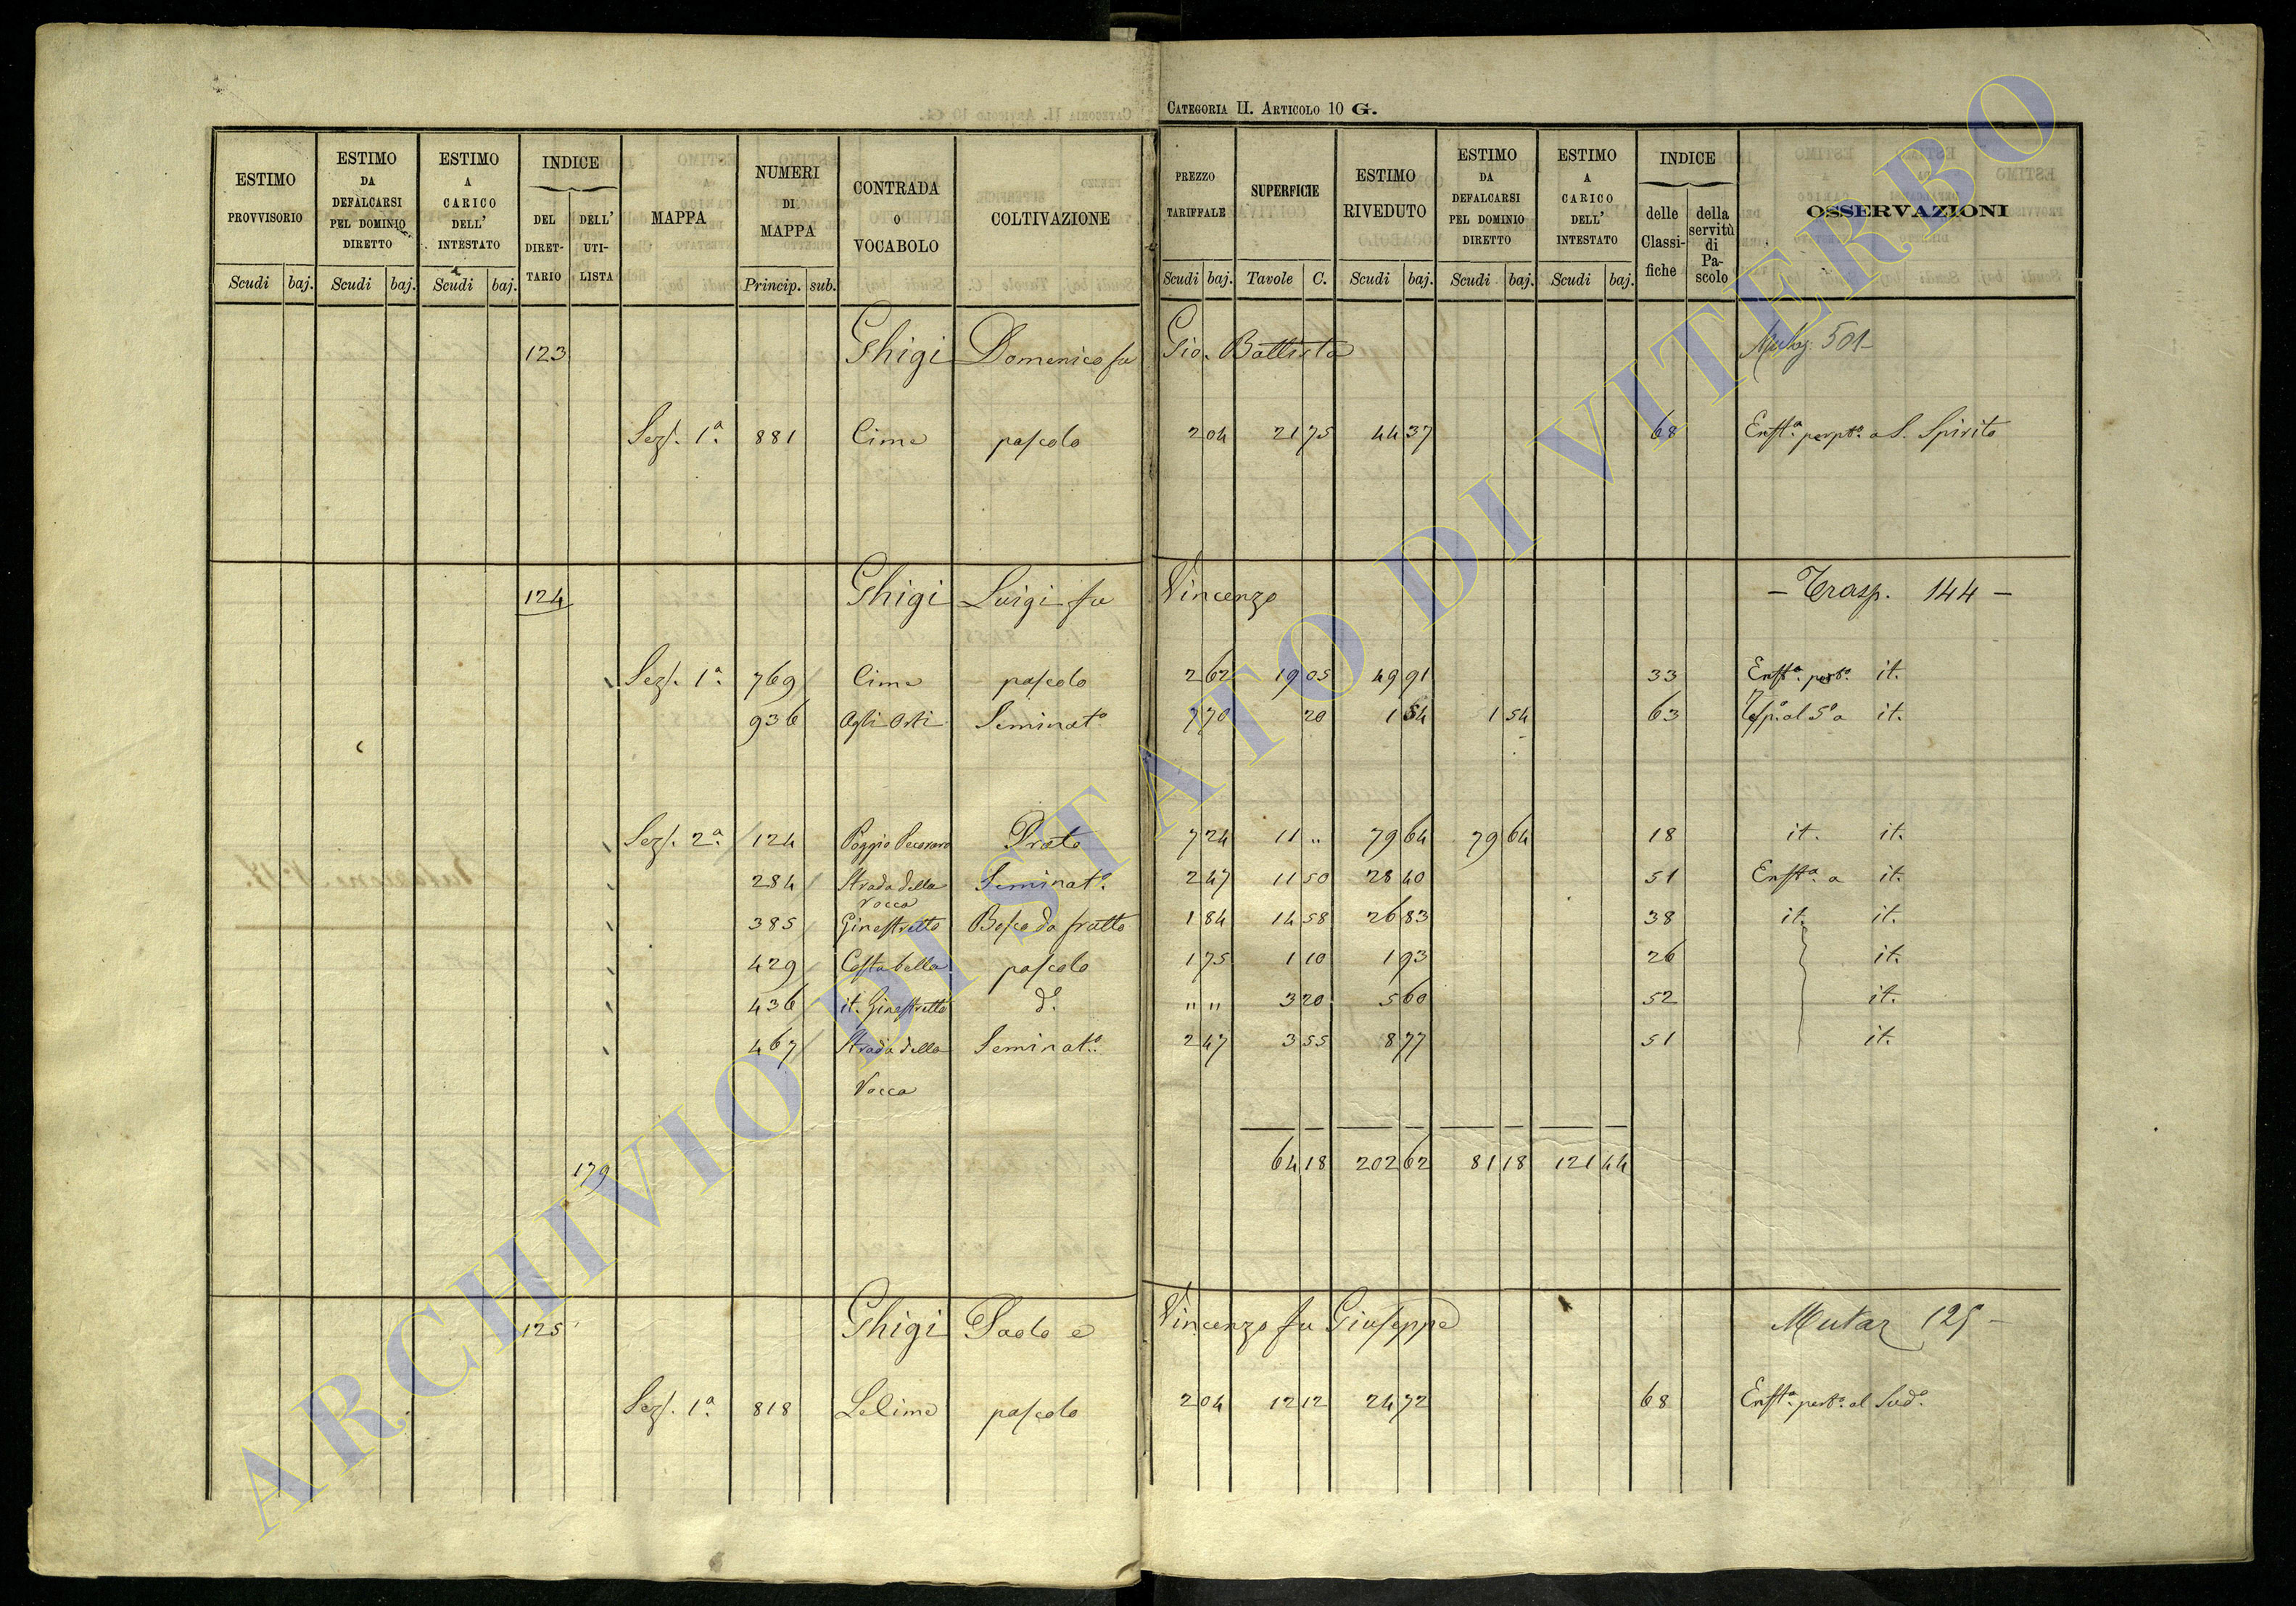 CATEGORIA II. ARTICOLO 10 G.
ESTIMO PROVVISORIO Scudi baj.
ESTIMO DA DEFALCARSI PEL DOMINIO DIRETTO Scudi baj.
ESTIMO A CARICO DELL' INTESTATO Scudi baj.
INDICE DEL DIRET-TARIO DELL' UTI-LISTA
MAPPA
NUMERI DI MAPPA Princip. sub.
CONTRADA O VOCABOLO
COLTIVAZIONE
PREZZO TARIFFALE Scudi baj.
SUPERFICIE Tavole C.
ESTIMO RIVEDUTO Scudi baj.
ESTIMO DA DEFALCARSI PEL DOMINIO DIRETTO Scudi baj.
ESTIMO A CARICO DELL' INTESTATO Scudi baj.
INDICE delle Classi-fiche della servitù di Pa-scolo
OSSERVAZIONI
123 Ghigi Domenico fu Gio. Battista 501
Sez. 1ª 881 Cime pascolo 2 04 21 75 44 37 68 Enftª perptª a S. Spirito
124 Ghigi Luigi fu Vincenzo – Trasp. 144 –
Sez. 1ª 769 Cime pascolo 2 62 19 05 49 91 33 Enftª perpª it.
936 Agli Orti Seminatº 7 70 20 1 54 1 54 63 al 5º a it.
Sez. 2ª 124 Poggio Pecoraro Prato 7 24 11 " 79 64 79 64 18 it. it.
284 Strada della Vocca Seminatº 2 47 11 50 28 40 51 Enftª a it.
385 Ginestretto Bosco da frutto 1 84 14 58 26 83 38 it. it.
429 Costabella pascolo 1 75 1 10 1 93 26 it.
436 it. Ginestretto dº " " 3 20 5 60 52 it.
467 Strada della Vocca Seminatº 2 47 3 55 8 77 51 it.
179 64 18 202 62 81 18 121 44
125 Ghigi Paolo e Vincenzo fu Giuseppe Mutaz 125 –
Sez. 1ª 818 Le Cime pascolo 2 04 12 12 24 72 68 Enftª perpª al Sudº
ARCHIVIO DI STATO DI VITERBO